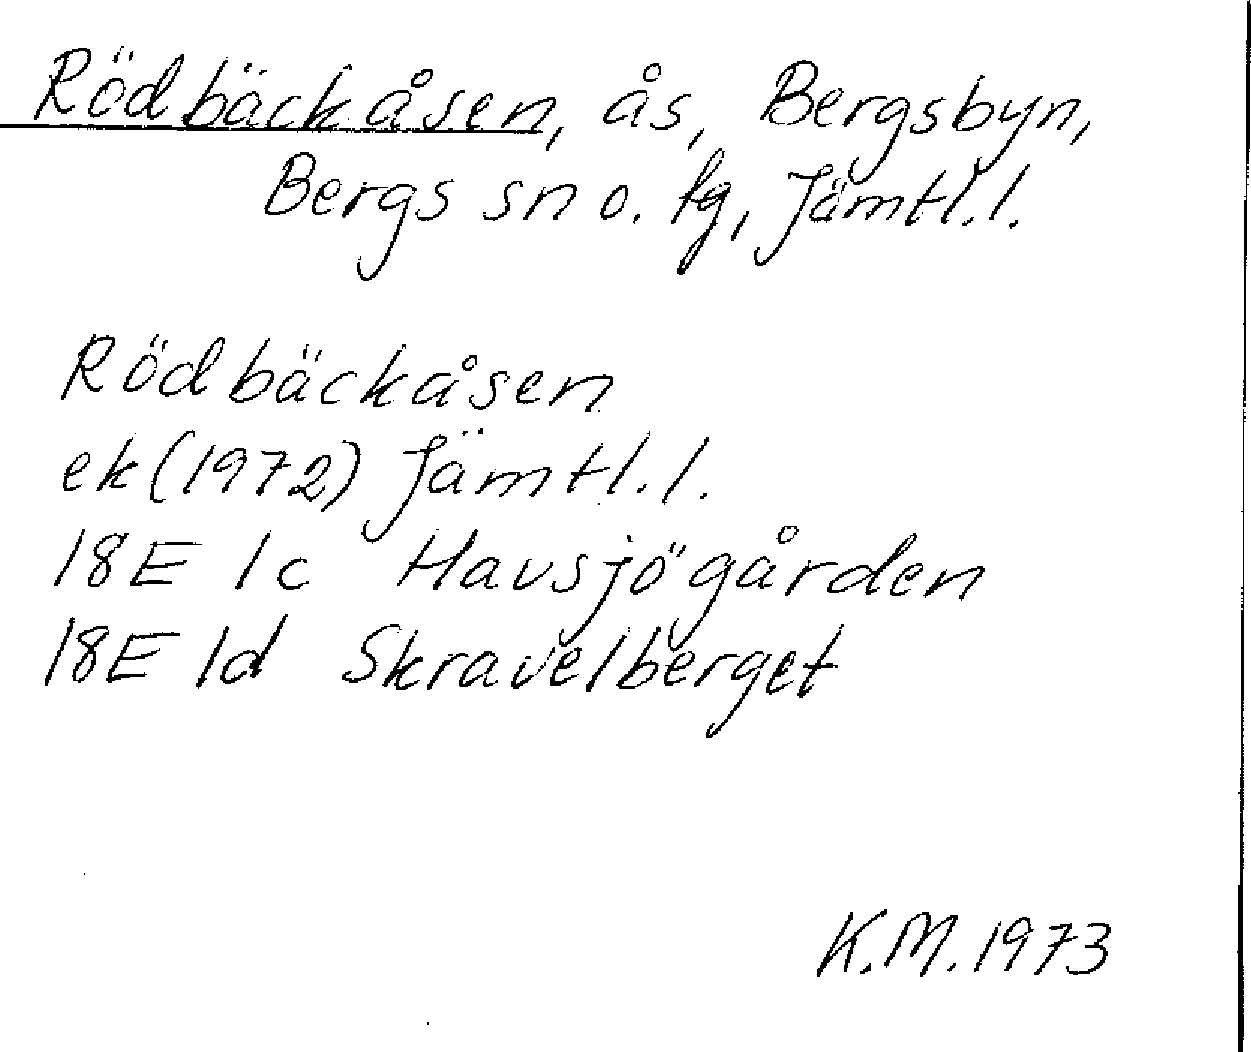 Rödbäckåsen, ås, Bergsbyn,
Bergs sn o. tg, Jämtl.l.
Rödbäckåsen
ek(1972) Jämtl.l.
18E 1c Havsjögården
18E 1d Skravelberget
K.M. 1973